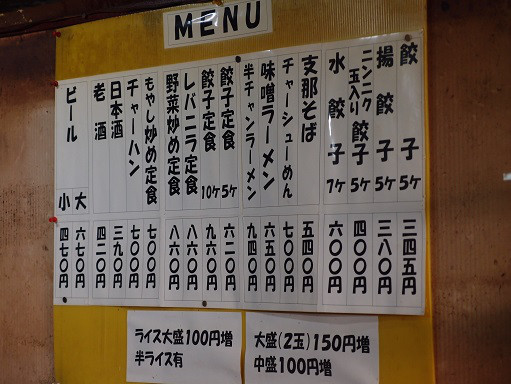 MENU
餃子 5ケ 三四五円
揚餃子 5ケ 三八〇円
ニンニク玉入り餃子 5ケ 四〇〇円
水餃子 7ケ 六〇〇円
支那そば 五四〇円
チャーシューめん 七〇〇円
味噌ラーメン 六五〇円
半チャンラーメン 九四〇円
餃子定食 5ケ 六二〇円
餃子定食 10ケ 九六〇円
レバニラ定食 八六〇円
野菜炒め定食 八六〇円
もやし炒め定食 七〇〇円
チャーハン 七〇〇円
日本酒 三九〇円
老酒 四二〇円
ビール 大 六七〇円
小 四七〇円
ライス大盛100円増
半ライス有
大盛(2玉)150円増
中盛100円増